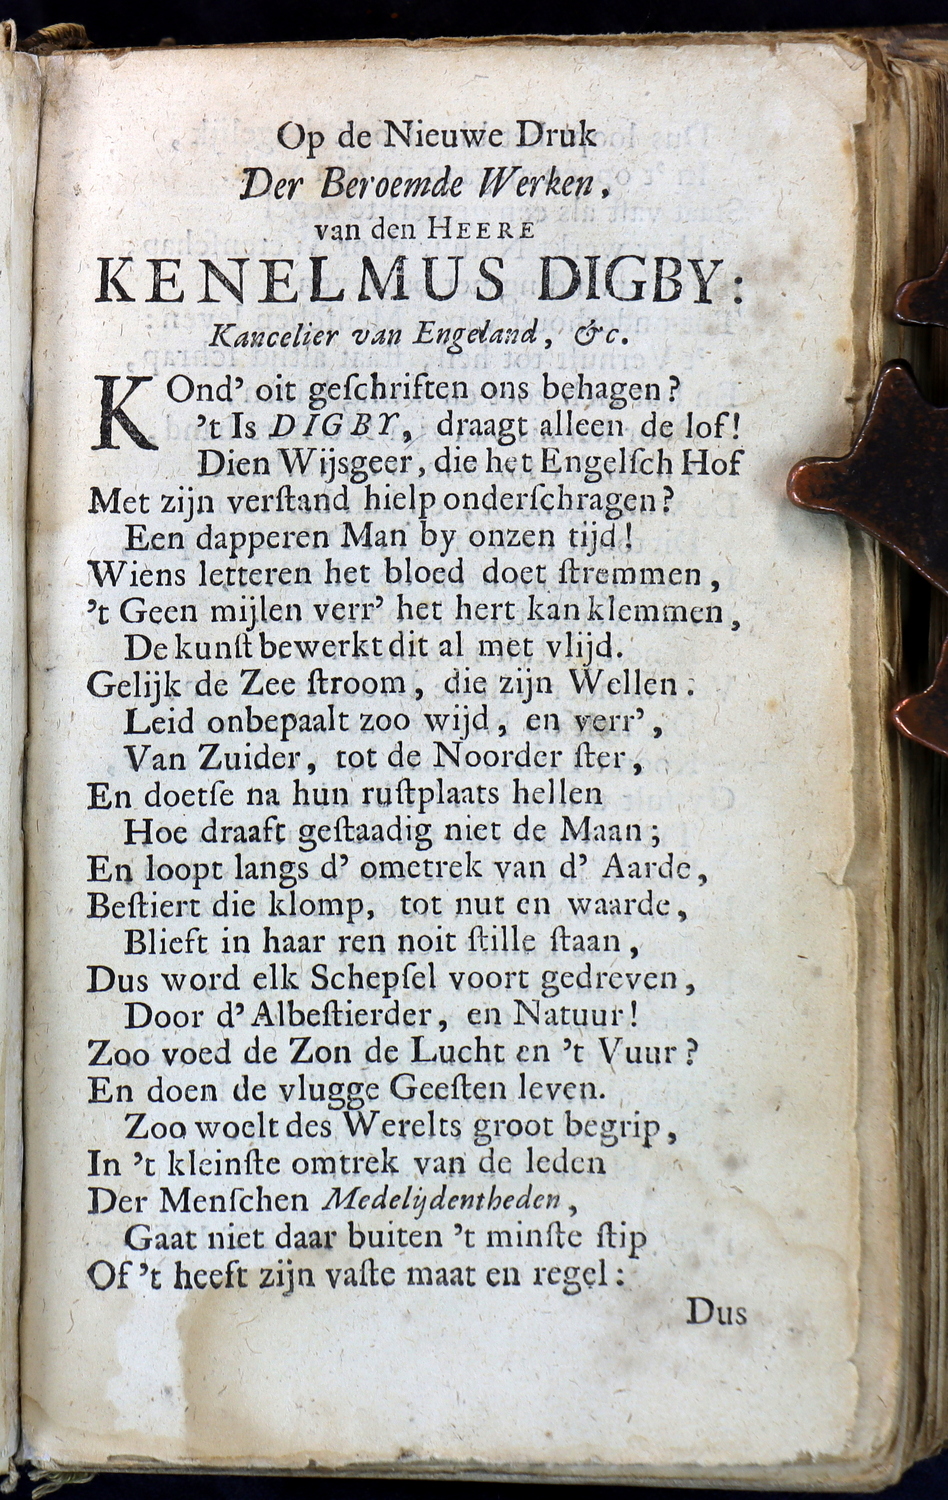 Op de Nieuwe Druk
Der Beroemde Werken,
van den HEERE
KENELMUS DIGBY:
Kancelier van Engeland, &c.
KOnd' oit geſchriften ons behagen?
't Is DIGBY, draagt alleen de lof!
Dien Wijsgeer, die het Engelſch Hof
Met zijn verſtand hielp onderſchragen?
Een dapperen Man by onzen tijd!
Wiens letteren het bloed doet ſtremmen,
't Geen mijlen verr' het hert kan klemmen,
De kunſt bewerkt dit al met vlijd.
Gelijk de Zee ſtroom, die zijn Wellen.
Leid onbepaalt zoo wijd, en verr',
Van Zuider, tot de Noorder ſter,
En doetſe na hun ruſtplaats hellen
Hoe draaft geſtaadig niet de Maan;
En loopt langs d' ometrek van d' Aarde,
Beſtiert die klomp, tot nut en waarde,
Blieft in haar ren noit ſtille ſtaan,
Dus word elk Schepſel voort gedreven,
Door d' Albeſtierder, en Natuur!
Zoo voed de Zon de Lucht en 't Vuur?
En doen de vlugge Geeſten leven.
Zoo woelt des Werelts groot begrip,
In 't kleinſte omtrek van de leden
Der Menſchen Medelijdentheden,
Gaat niet daar buiten 't minſte ſtip
Of 't heeft zijn vaſte maat en regel:
Dus